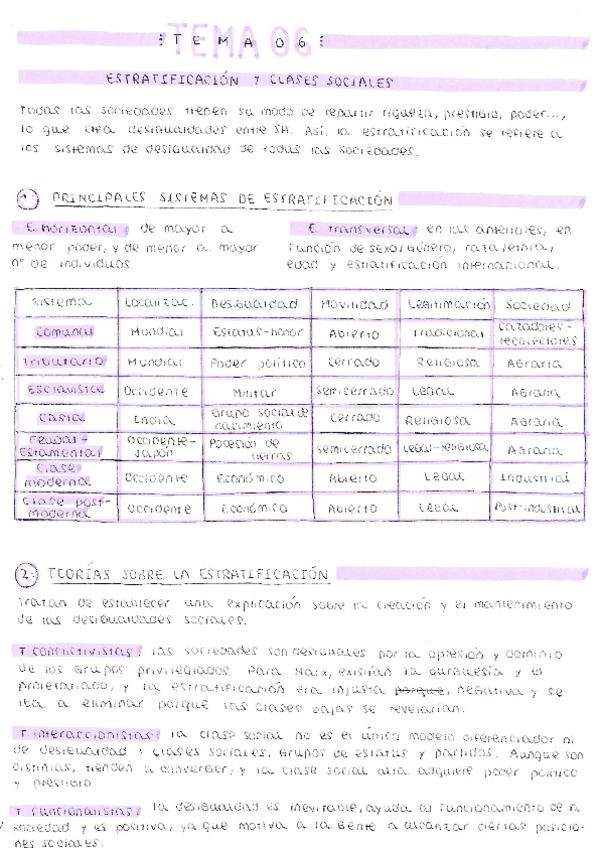 TEMA 06
TEMA 06
ESTRATIFICACIÓN Y CLASES SOCIALES
Todas las sociedades tienen su modo de repartir riqueza, prestigio, poder...,
lo que crea desigualdades entre SH. Así, la estratificación se refiere a
los sistemas de desigualdad de todas las sociedades.
1. PRINCIPALES SISTEMAS DE ESTRATIFICACIÓN
E. horizontal: de mayor a
menor poder, y de menor a mayor
nº de individuos
E. transversal: en las anteriores, en
función de sexo/género, raza/etnia,
edad y estratificación internacional.
Sistema Localizac. Desigualdad Movilidad Legitimación Sociedad
Comunal Mundial Estatus-honor Abierto Tradicional Cazadores-recolectores
Tributario Mundial Poder político Cerrado Religiosa Agraria
Esclavista Occidente Militar Semicerrado Legal Agraria
Casta India Grupo social de nacimiento Cerrado Religiosa Agraria
Feudal-Estamental Occidente-Japón Posesión de tierras Semicerrado Legal-religiosa Agraria
Clase moderna Occidente Económico Abierto Legal Industrial
Clase post-moderna Occidente Económico Abierto Legal Post-industrial
2. TEORÍAS SOBRE LA ESTRATIFICACIÓN
Tratan de establecer una explicación sobre la creación y el mantenimiento
de las desigualdades sociales.
T. conflictivistas: las sociedades son desiguales por la opresión y dominio
de los grupos privilegiados. Para Marx, existían la burguesía y el
proletariado, y la estratificación era injusta porque, negativa y se
iba a eliminar porque las clases bajas se revelarían.
T. interaccionistas: la clase social no es el único modelo diferenciador ni
de desigualdad: clases sociales, grupos de estatus y partidos. Aunque son
distintas, tienden a converger, y la clase social alta adquiere poder político
y prestigio
T. funcionalistas: la desigualdad es inevitable, ayuda al funcionamiento de la
sociedad y es positiva, ya que motiva a la gente a alcanzar ciertas posicio-
nes sociales.